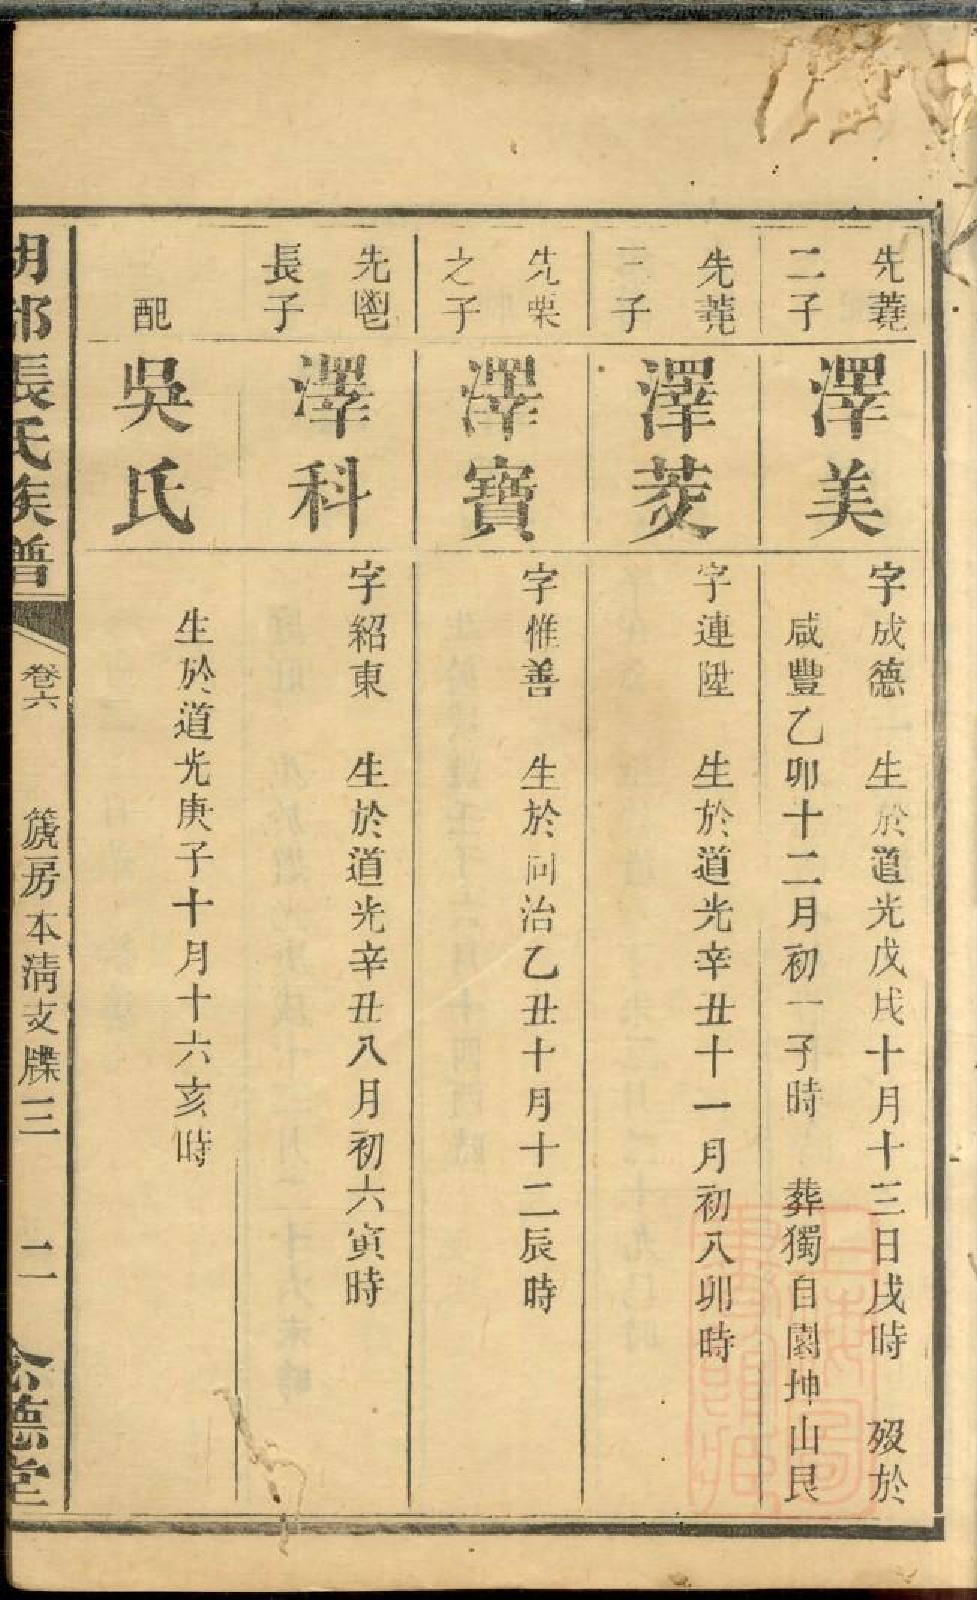 先蕘
二子
澤美
字成德 生於道光戊戌十月十三日戌時 歿於
咸豐乙卯十二月初一子時 葬獨自園坤山艮
先蕘
三子
澤茭
字連陞 生於道光辛丑十一月初八卯時
先栗
之子
澤寶
字惟善 生於同治乙丑十月十二辰時
先鬯
長子
澤科
字紹東 生於道光辛丑八月初六寅時
配
吳氏
生於道光庚子十月十六亥時
張氏族譜
卷六
篪房本清支牒三
二
德堂